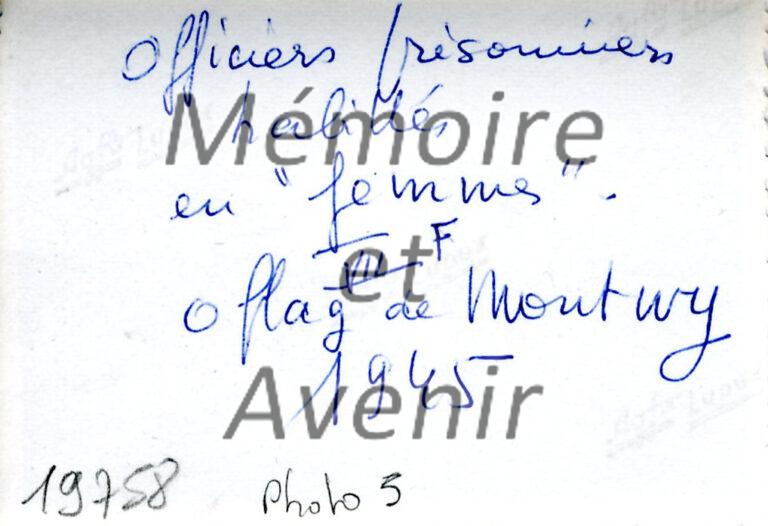 Officiers prisonniers
Mémoire
habillés
en "femmes".
et
VIII F
Oflag de Montwy
1945
Avenir
19758 Photo 5